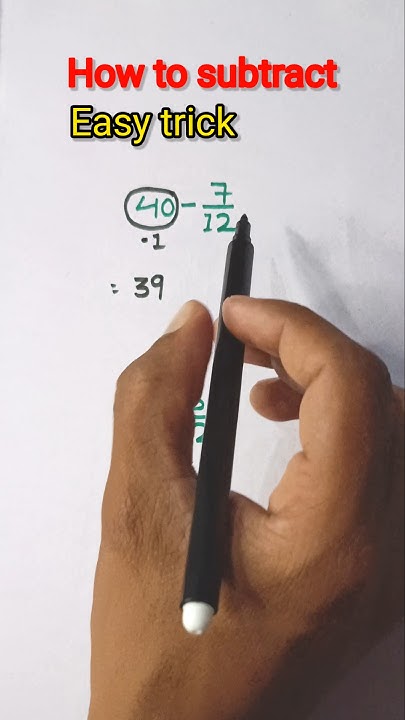 How to subtract
Easy trick
40 - 7/12
-1
= 39